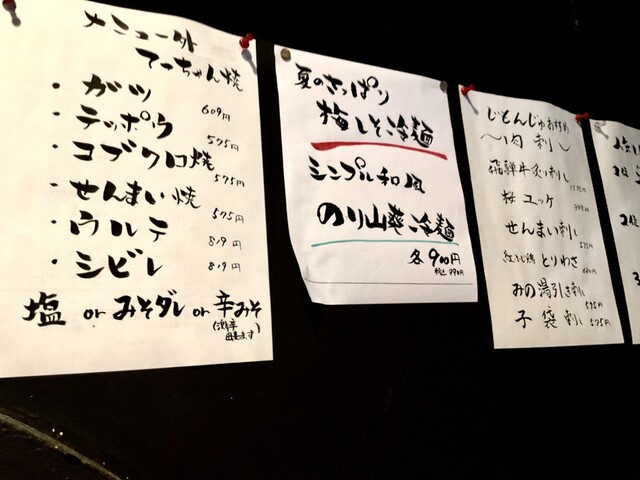 メニュー外
てっちゃん焼
・ガツ 609円
・テッポウ 575円
・コブクロ焼 575円
・せんまい焼 575円
・ウルテ 819円
・シビレ 819円
塩 or みそダレ or 辛みそ
出来ます)
夏のさっぱり
梅しそ冷麺
シンプル和風
のり山葵冷麺
各900円
税込990円
じもんじゅおすすめ
〜肉刺し
飛騨牛炙り刺し
桜ユッケ
せんまい刺し 575円
とりわさ
みの湯引き刺し 575円
子袋刺し 575円